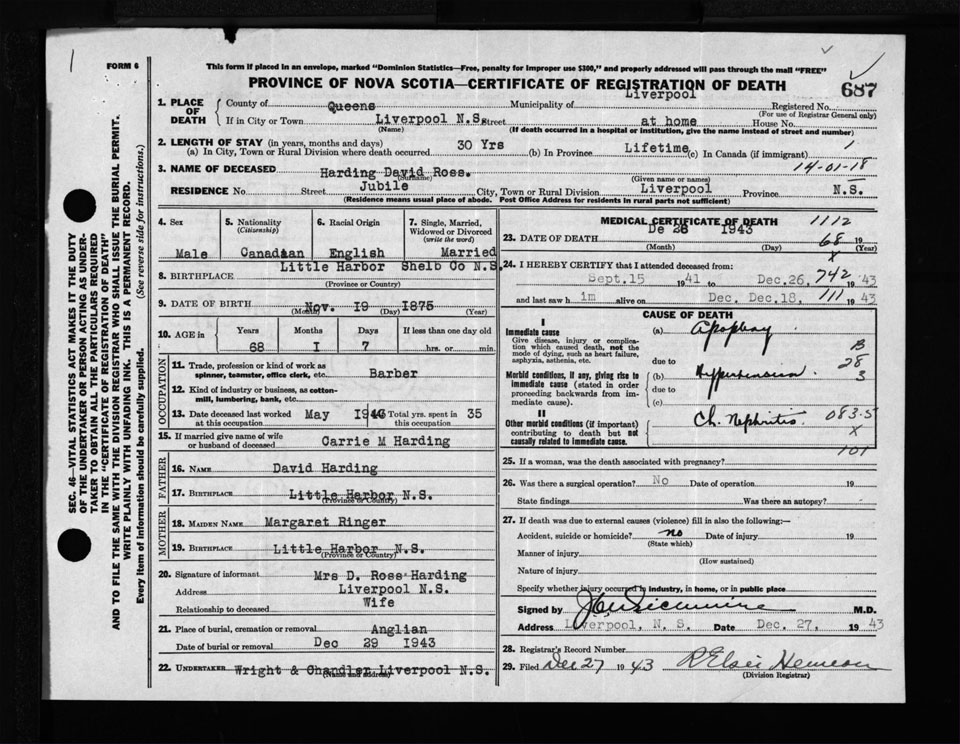 FORM 6
This form if placed in an envelope, marked "Dominion Statistics—Free, penalty for improper use $300," and properly addressed will pass through the mail "FREE"
PROVINCE OF NOVA SCOTIA—CERTIFICATE OF REGISTRATION OF DEATH
687
1. PLACE OF DEATH
County of Queens Municipality of Liverpool Registered No.
(For use of Registrar General only)
If in City or Town Liverpool N.S. Street at home House No.
(Name) (If death occurred in a hospital or institution, give the name instead of street and number)
2. LENGTH OF STAY (in years, months and days)
(a) In City, Town or Rural Division where death occurred 30 Yrs (b) In Province Lifetime (c) In Canada (if immigrant)
14-01-18
3. NAME OF DECEASED Harding David Ross.
(Surname) (Given name or names)
RESIDENCE No. Street Jubile City, Town or Rural Division Liverpool Province N.S.
(Residence means usual place of abode. Post Office Address for residents in rural parts not sufficient)
4. Sex
Male
5. Nationality
(Citizenship)
Canadian
6. Racial Origin
English
7. Single, Married, Widowed or Divorced
(write the word)
Married
8. BIRTHPLACE Little Harbor Shelb Co N.S.
(Province or Country)
9. DATE OF BIRTH Nov. 19 1875
(Month) (Day) (Year)
10. AGE in Years Months Days If less than one day old
68 I 7 hrs. or min.
OCCUPATION
11. Trade, profession or kind of work as spinner, teamster, office clerk, etc. Barber
12. Kind of industry or business, as cotton-mill, lumbering, bank, etc.
13. Date deceased last worked at this occupation May Total yrs. spent in this occupation 35
15. If married give name of wife or husband of deceased Carrie M Harding
FATHER
16. NAME David Harding
17. BIRTHPLACE Little Harbor N.S.
(Province or Country)
MOTHER
18. MAIDEN NAME Margaret Ringer
19. BIRTHPLACE Little Harbor N.S.
(Province or Country)
20. Signature of informant Mrs D. Ross Harding
Address Liverpool N.S.
Relationship to deceased Wife
21. Place of burial, cremation or removal Anglian
Date of burial or removal Dec 29 1943
22. UNDERTAKER Wright & Chandler Liverpool N.S.
(Name and address)
MEDICAL CERTIFICATE OF DEATH
1112
23. DATE OF DEATH De 26 1943
(Month) (Day) (Year)
68 19
x
24. I HEREBY CERTIFY that I attended deceased from:
Sept.15 1941 to Dec.26, 1943
742
and last saw him alive on Dec. Dec.18, 1943
111
CAUSE OF DEATH
I
Immediate cause
Give disease, injury or complication which caused death, not the mode of dying, such as heart failure, asphyxia, asthenia, etc.
(a)
B
due to
28
Morbid conditions, if any, giving rise to immediate cause (stated in order proceeding backwards from immediate cause).
(b)
3
due to
(c)
II
Other morbid conditions (if important) contributing to death but not causally related to immediate cause.
Ch. Nephritis
083.5
x
101
25. If a woman, was the death associated with pregnancy?
26. Was there a surgical operation? No Date of operation 19
State findings Was there an autopsy?
27. If death was due to external causes (violence) fill in also the following:—
Accident, suicide or homicide? no Date of injury 19
(State which)
Manner of injury
(How sustained)
Nature of injury
Specify whether injury occurred in industry, in home, or in public place
Signed by M.D.
Address Liverpool, N. S. Date Dec. 27, 1943
28. Registrar's Record Number
29. Filed Dec 27 1943
(Division Registrar)
SEC. 46—VITAL STATISTICS ACT MAKES IT THE DUTY
OF THE UNDERTAKER OR PERSON ACTING AS UNDER-
TAKER TO OBTAIN ALL THE PARTICULARS REQUIRED
IN THE "CERTIFICATE OF REGISTRATION OF DEATH"
AND TO FILE THE SAME WITH THE DIVISION REGISTRAR WHO SHALL ISSUE THE BURIAL PERMIT.
WRITE PLAINLY WITH UNFADING INK. THIS IS A PERMANENT RECORD.
Every item of information should be carefully supplied. (See reverse side for instructions.)